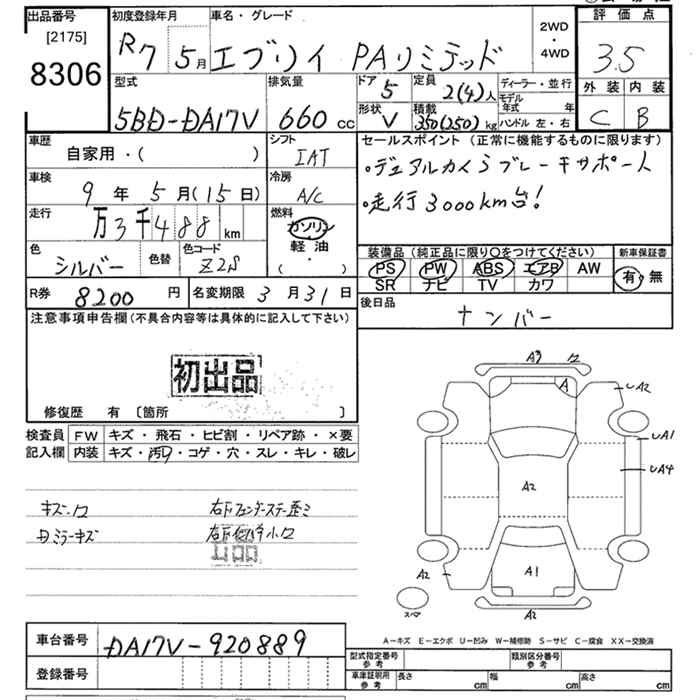 出品番号
[2175]
8306
初度登録年月
R7 5月
車名・グレード
エブリイ PAリミテッド
2WD
・
4WD
評価点
3.5
外装 内装
C B
型式
5BD-DA17V
排気量
660 cc
ドア
5
形状
V
定員
2(4)人
積載
350(250)kg
ディーラー・並行
モデル年式 年
ハンドル 左・右
車歴
自家用・( )
シフト
IAT
セールスポイント (正常に機能するものに限ります)
・デュアルカメラブレーキサポート
・走行3000km台!
車検
9年5月(15日)
冷房
A/C
走行
万3千488km
燃料
ガソリン
・
軽油
・
( )
色
シルバー
色替
色コード
Z2S
装備品 (純正品に限り〇をつけてください)
PS PW ABS エアB AW
SR ナビ TV カワ
新車保証書
有・無
R券
8200円
名変期限 3月31日
後日品
ナンバー
注意事項申告欄(不具合内容等は具体的に記入して下さい)
初出品
修復歴 有 〔箇所 〕
検査員
記入欄
FW キズ・飛石・ヒビ割・リペア跡・×要
内装 キズ・汚れ・コゲ・穴・スレ・キレ・破レ
キズ・凹
右Fフェンダーステー歪ミ
ミラーキズ
出品
A3 凹
A
UA2
UA1
UA4
A2
A1
A2
A2
スペア
A−キズ E−エクボ U−凹み W−補修跡 S−サビ C−腐食 XX−交換済
車台番号
DA17V-920889
登録番号
型式指定番号
参考
類別区分番号
参考
車庫証明用
参考
長さ cm
幅 cm
高さ cm